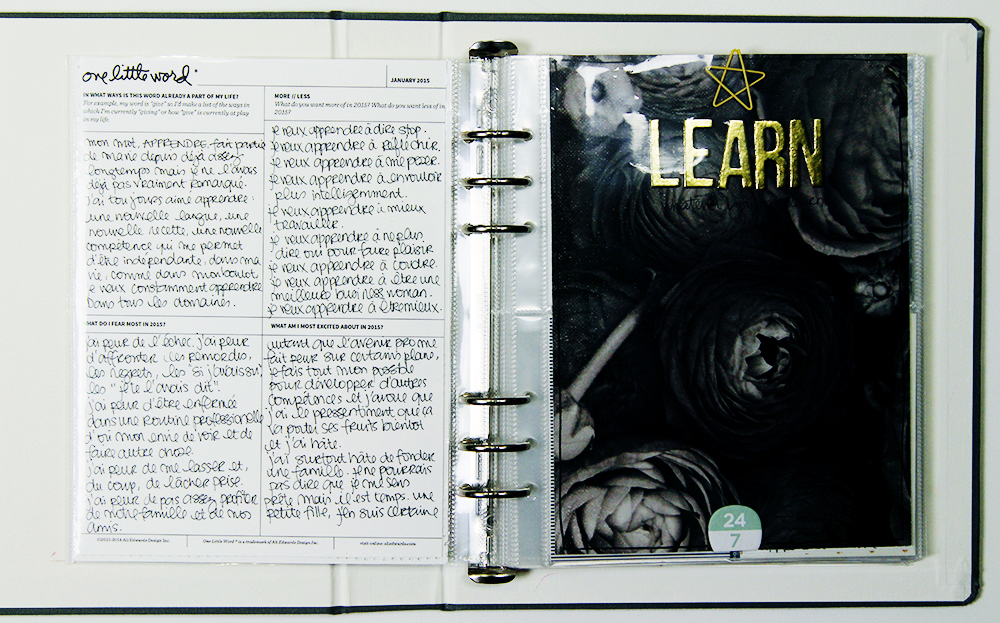 one little word®
JANUARY 2015
IN WHAT WAYS IS THIS WORD ALREADY A PART OF MY LIFE?
For example, my word is "give" so I'd make a list of the ways in
which I'm currently "giving" or how "give" is currently at play
in my life.
mon mot, APPRENDRE, fait partie
de ma vie depuis déjà assez
longtemps mais je ne l'avais
déjà pas vraiment remarqué.
j'ai toujours aimé apprendre :
une nouvelle langue, une
nouvelle recette, une nouvelle
compétence qui me permet
d'être indépendante. dans ma
vie, comme dans mon boulot
je veux constamment apprendre
Dans tous les domaines.
MORE // LESS
What do you want more of in 2015? What do you want less of in
2015?
je veux apprendre à dire stop.
je veux apprendre à réfléchir.
je veux apprendre à me poser.
je veux apprendre à
plus intelligemment.
je veux apprendre à mieux
travailler.
je veux apprendre à ne plus
dire oui pour faire plaisir
je veux apprendre à coudre.
je veux apprendre à être une
meilleure business woman.
je veux apprendre à être mieux.
HAT DO I FEAR MOST IN 2015?
ai peur de l'échec. j'ai peur
d'affronter les remords,
les regrets, les "si j'avais su",
les "je te l'avais dit".
j'ai peur d'être enfermée
dans une routine professionnelle
d'où mon envie de voir et de
faire autre chose.
j'ai peur de me lasser et,
du coup, de lâcher prise.
j'ai peur de pas assez profiter
de notre famille et de nos
amis.
WHAT AM I MOST EXCITED ABOUT IN 2015?
autant que l'avenir pro me
fait peur sur certains plans,
je fais tout mon possible
pour développer d'autres
compétences et j'avoue que
j'ai le pressentiment que ça
va porter ses fruits bientôt
et j'ai hâte.
j'ai surtout hâte de fonder
une famille. je ne pourrais
pas dire que je me sens
prête mais il est temps. une
petite fille, j'en suis certaine
©2011-2014 Ali Edwards Design Inc.
One Little Word ® is a trademark of Ali Edwards Design Inc.
visit online: aliedwards.com
LEARN
24
7